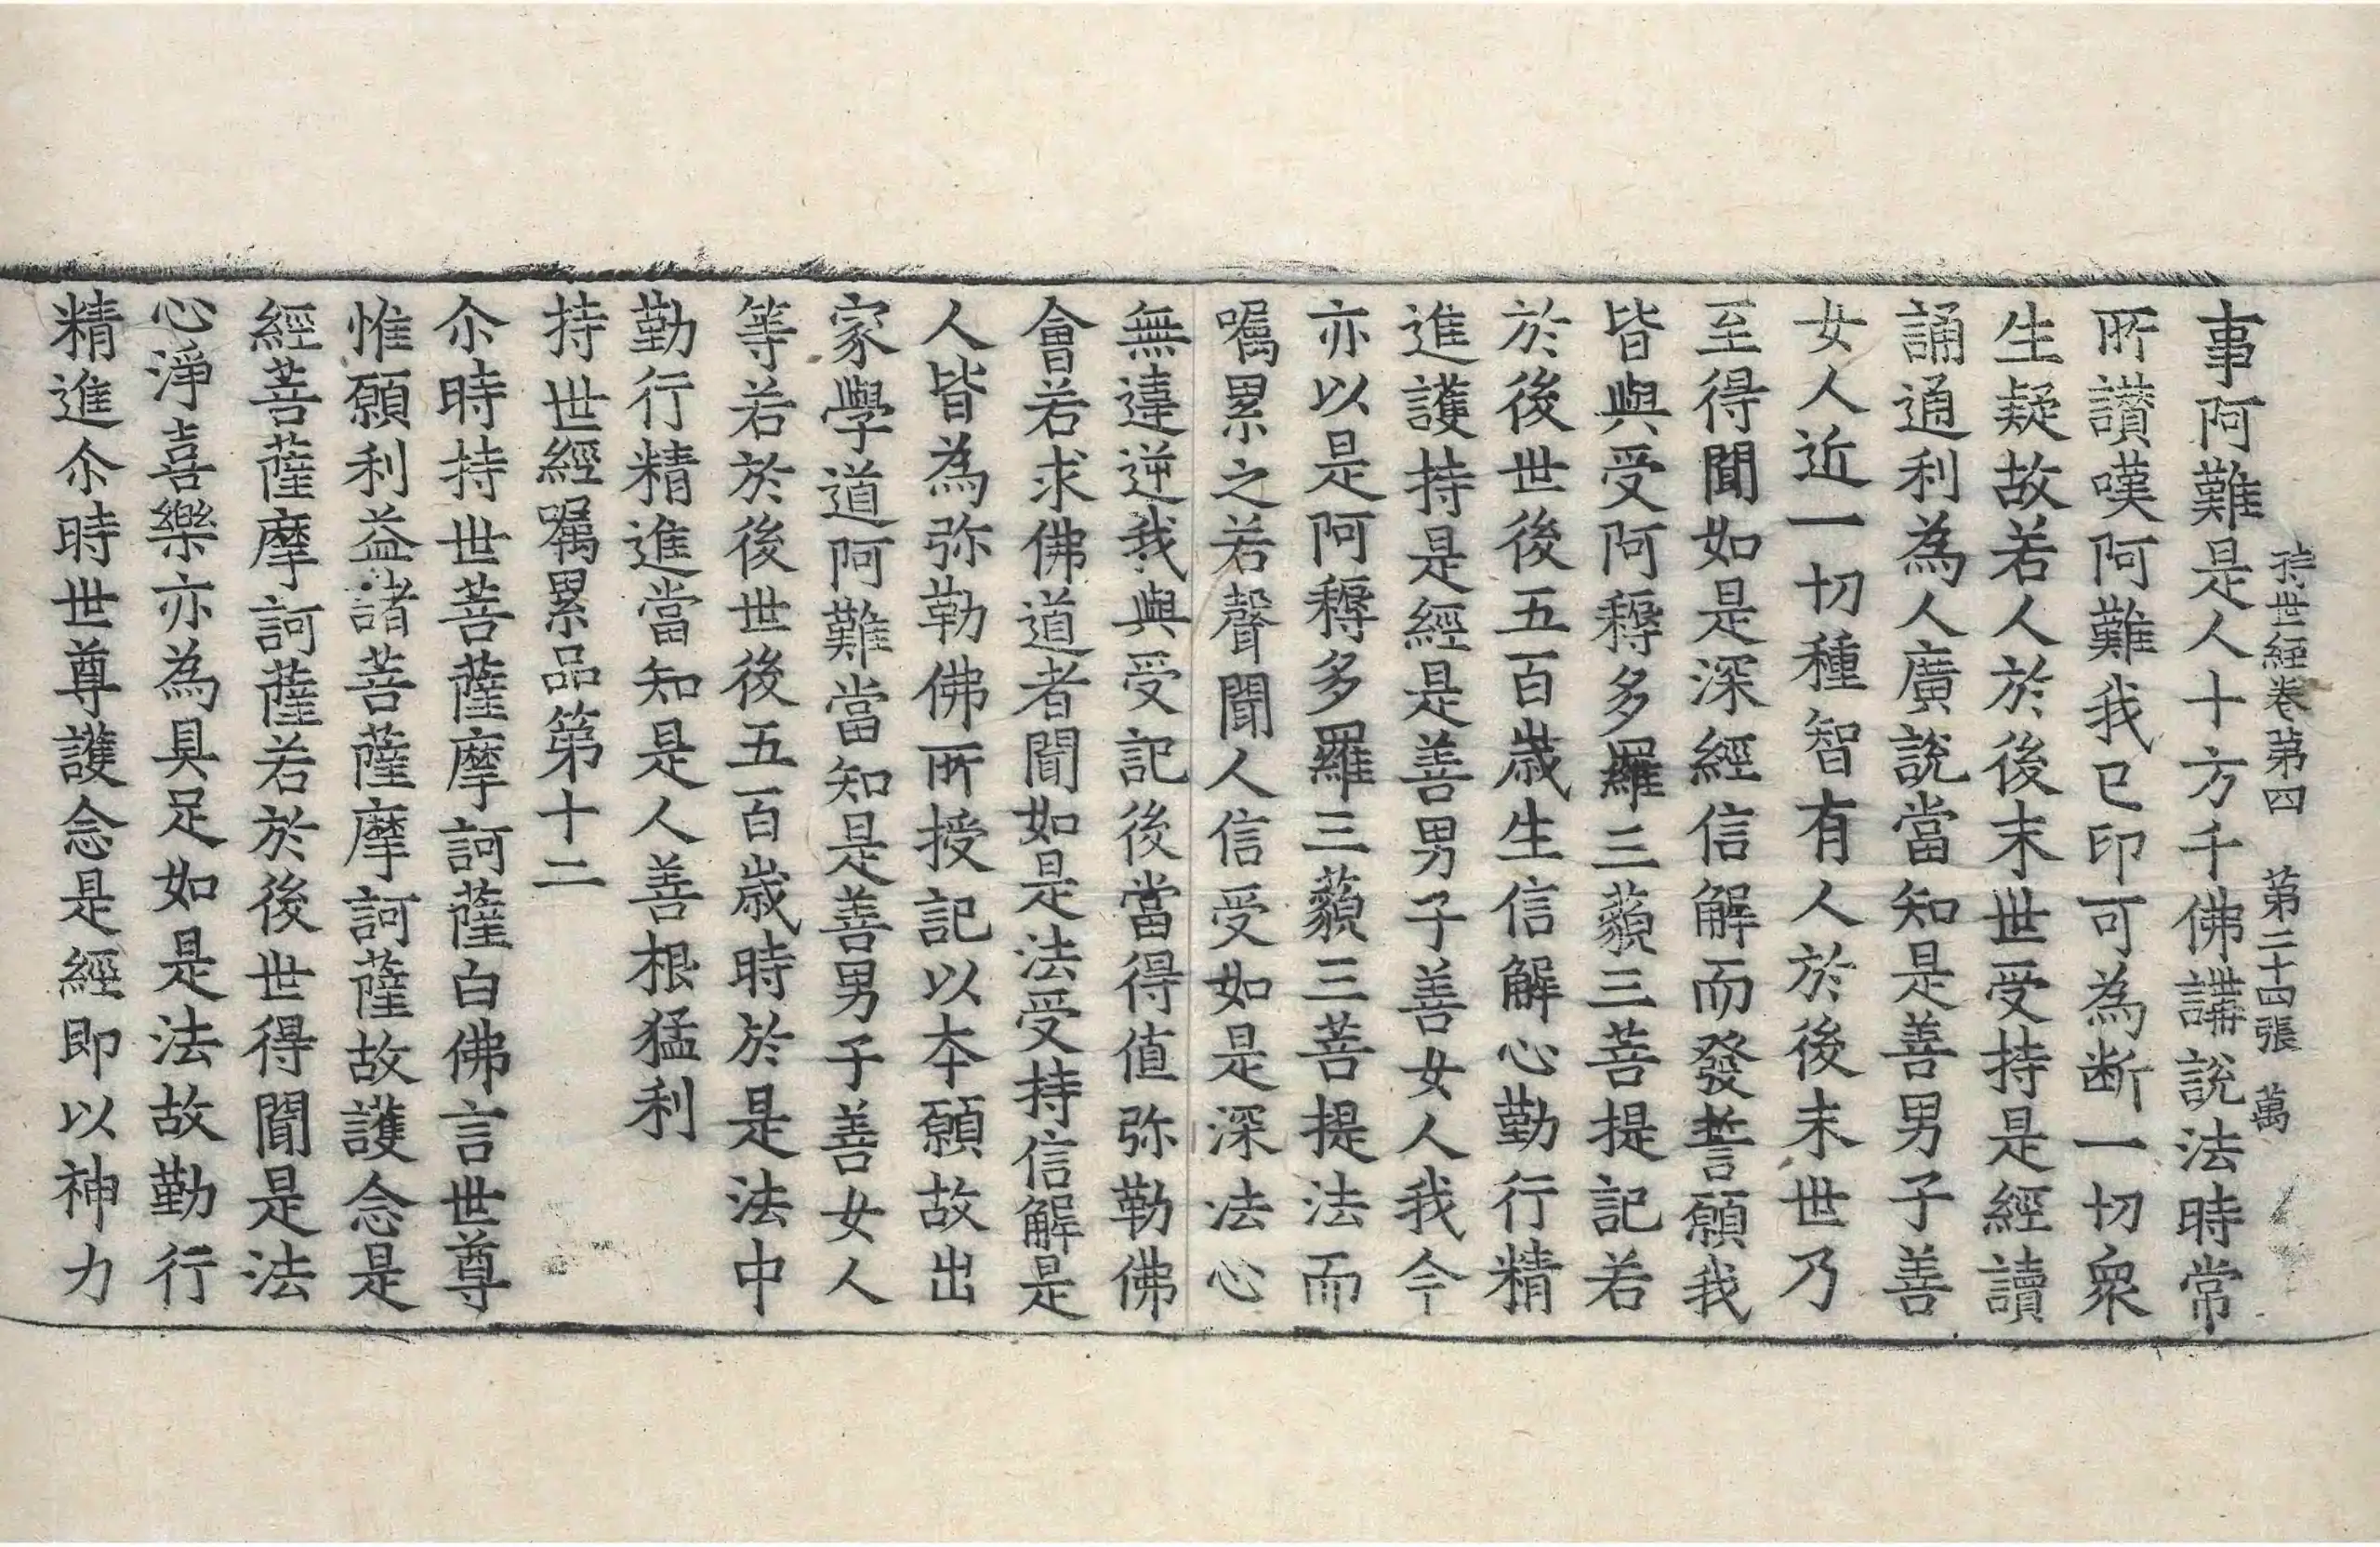 持世經卷第四 第二十四張 萬
事阿難是人十方千佛講說法時常
所讃嘆阿難我已印可為断一切衆
生疑故若人於後末世受持是經讀
誦通利為人廣說當知是善男子善
女人近一切種智有人於後末世乃
至得聞如是深經信解而發誓願我
皆與受阿耨多羅三藐三菩提記若
於後世後五百歳生信解心勤行精
進護持是經是善男子善女人我今
亦以是阿耨多羅三藐三菩提法而
囑累之若聲聞人信受如是深法心
無違逆我與受記後當得值弥勒佛
會若求佛道者聞如是法受持信解是
人皆為弥勒佛所授記以本願故出
家學道阿難當知是善男子善女人
等若於後世後五百歳時於是法中
勤行精進當知是人善根猛利
持世經囑累品第十二
尒時持世菩薩摩訶薩白佛言世尊
惟願利益諸菩薩摩訶薩故護念是
經菩薩摩訶薩若於後世得聞是法
心淨喜樂亦為具足如是法故勤行
精進尒時世尊護念是經即以神力